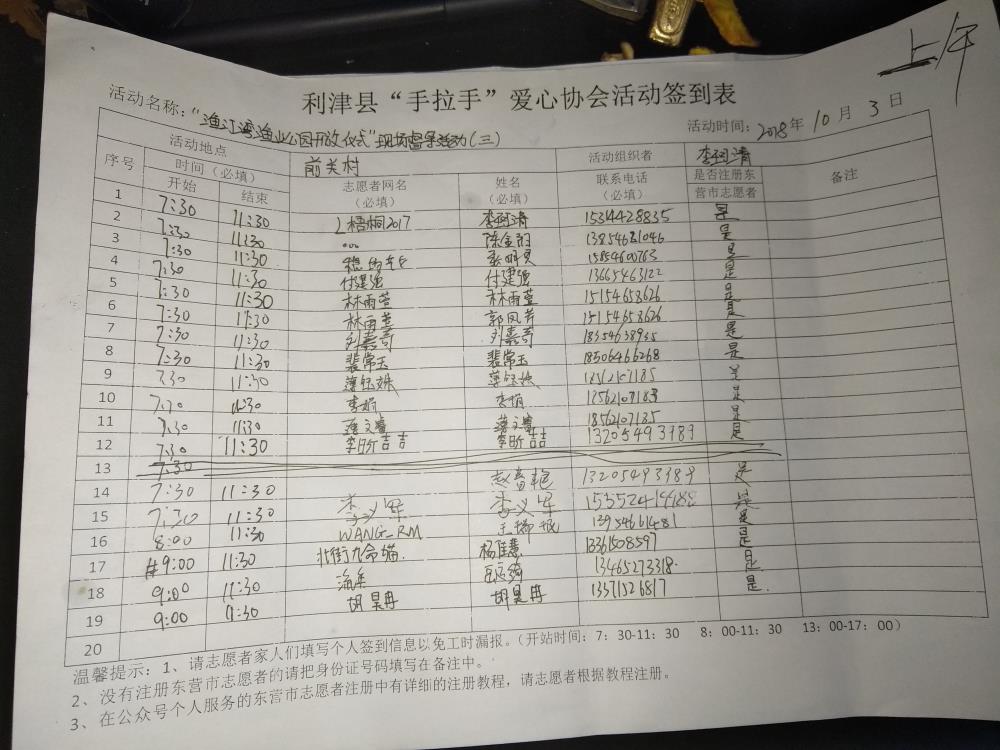 上午
利津县“手拉手”爱心协会活动签到表
活动名称:“渔江湾渔业公园开放仪式”现场督导活动(三)
活动时间: 2018年 10月 3日
活动地点 前关村 活动组织者
序号 时间(必填) 志愿者网名 姓名 联系电话 是否注册东 备注
开始 结束 (必填) (必填) (必填) 营市志愿者
1 7:30 11:30 梧桐2017 15314428835 是
2 7:30 11:30 ... 13854681046 是
3 7:30 11:30 是
4 7:30 11:30 付建强 付建强 13665463122 是
5 7:30 11:30 林雨萱 林雨萱 15154658626 是
6 7:30 11:30 林雨萱 郭凤芹 15154658626 是
7 7:30 11:30 刘嘉奇 刘嘉奇 18354638935 是
8 7:30 11:30 裴常玉 裴常玉 18506466268 是
9 7:30 11:30 是
10 7:30 11:30 李娟 李娟 是
11 7:30 11:30 是
12 7:30 11:30 李昕吉吉 李昕吉 13205493989 是
13 7:30
14 7:30 11:30 13205493989 是
15 7:30 11:30 李义军 李义军 是
16 8:00 11:30 WANG_RM 13954661481 是
17 9:00 11:30 北街九命猫. 杨佳慧 13361508597 是
18 9:00 11:30 13465273318. 是
19 9:00 11:30 胡昊冉 胡昊冉 13371526817 是.
20
温馨提示:1、请志愿者家人们填写个人签到信息以免工时漏报。(开站时间:7:30-11:30 8:00-11:30 13:00-17:00)
2、没有注册东营市志愿者的请把身份证号码填写在备注中。
3、在公众号个人服务的东营市志愿者注册中有详细的注册教程,请志愿者根据教程注册。